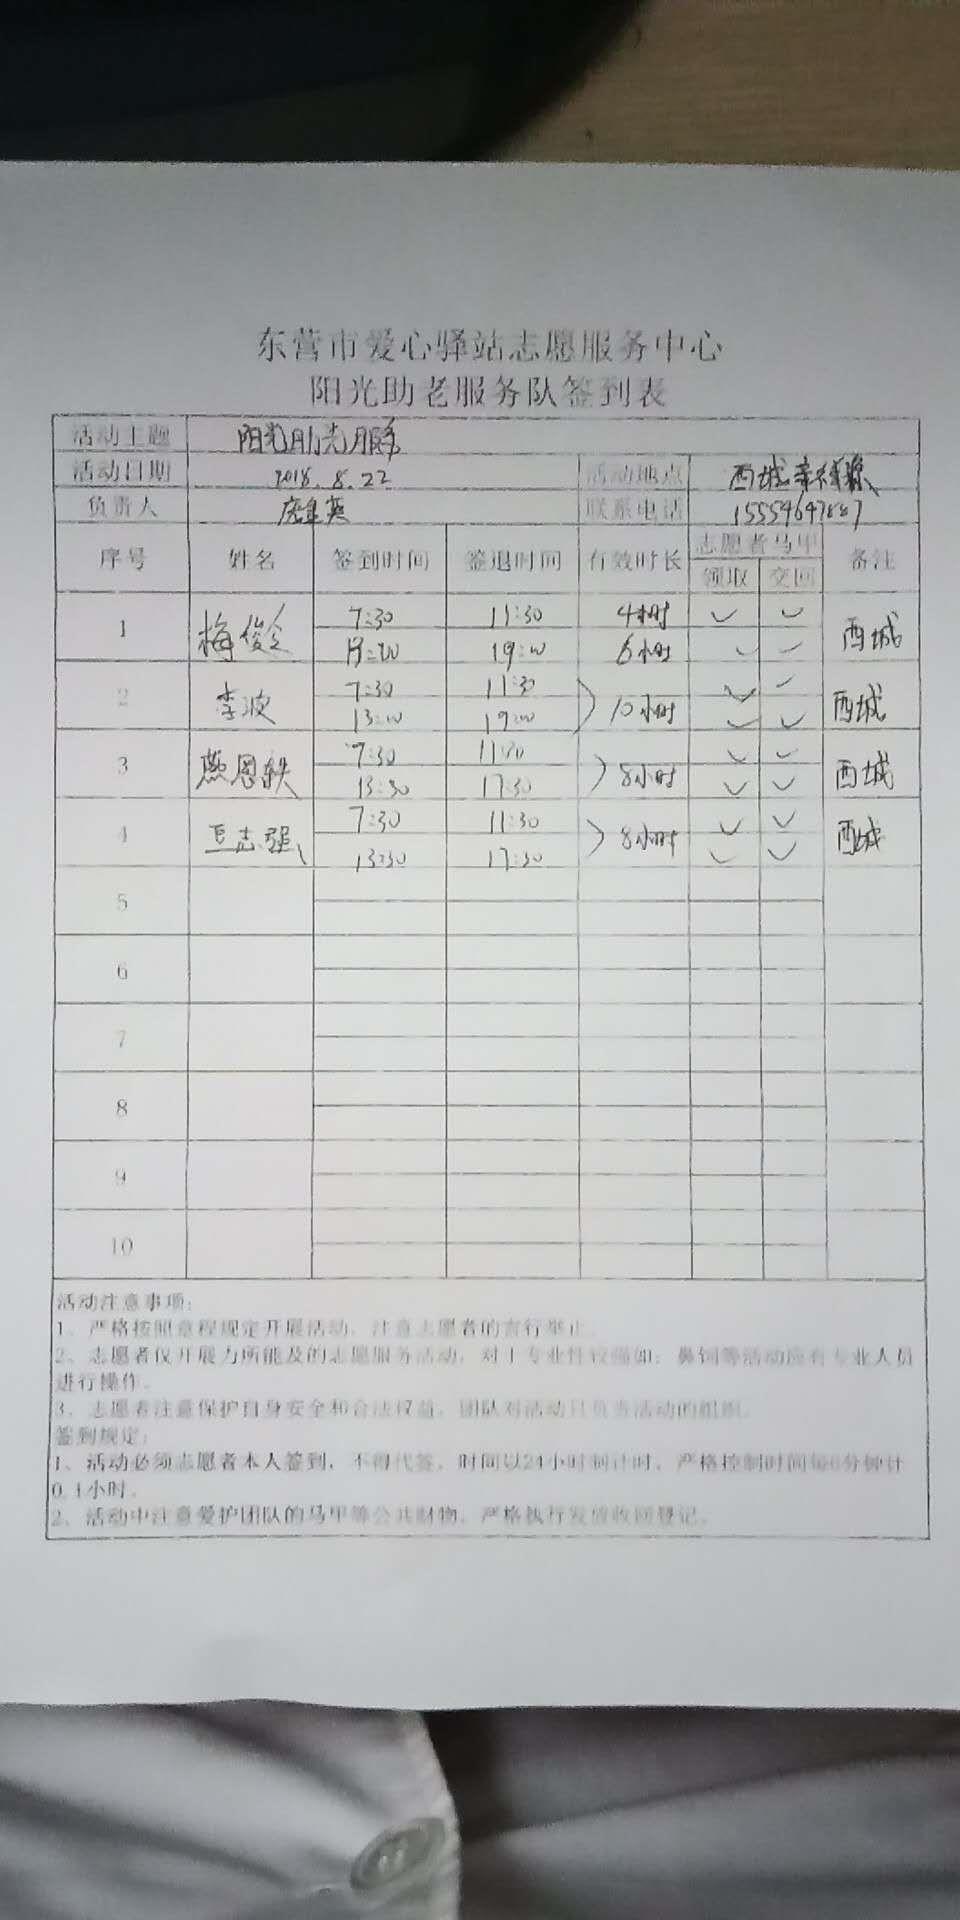 东营市爱心驿站志愿服务中心
阳光助老服务队签到表
活动主题 阳光助老服务
活动日期 2018.8.22 活动地点 西城
负责人 联系电话 15554647887
序号 姓名 签到时间 签退时间 有效时长 志愿者马甲 备注
领取 交回
1 梅俊 7:30 11:30 4小时 ✓ ✓ 西城
13:00 19:00 6小时 ✓ ✓
2 李波 7:30 11:30 10小时 ✓ ✓ 西城
13:00 19:00 ✓ ✓
3 燕恩轶 7:30 11:30 8小时 ✓ ✓ 西城
13:30 17:30 ✓ ✓
4 志强 7:30 11:30 8小时 ✓ ✓ 西城
13:30 17:30 ✓ ✓
5
6
7
8
9
10
活动注意事项:
1、严格按照章程规定开展活动，注意志愿者的言行举止。
2、志愿者仅开展力所能及的志愿服务活动，对于专业性较强如：鼻饲等活动应有专业人员
进行操作。
3、志愿者注意保护自身安全和合法权益，团队对活动只负责活动的组织。
签到规定:
1、活动必须志愿者本人签到，不得代签，时间以24小时制计时，严格控制时间每6分钟计
0.1小时。
2、活动中注意爱护团队的马甲等公共财物，严格执行发放收回登记。